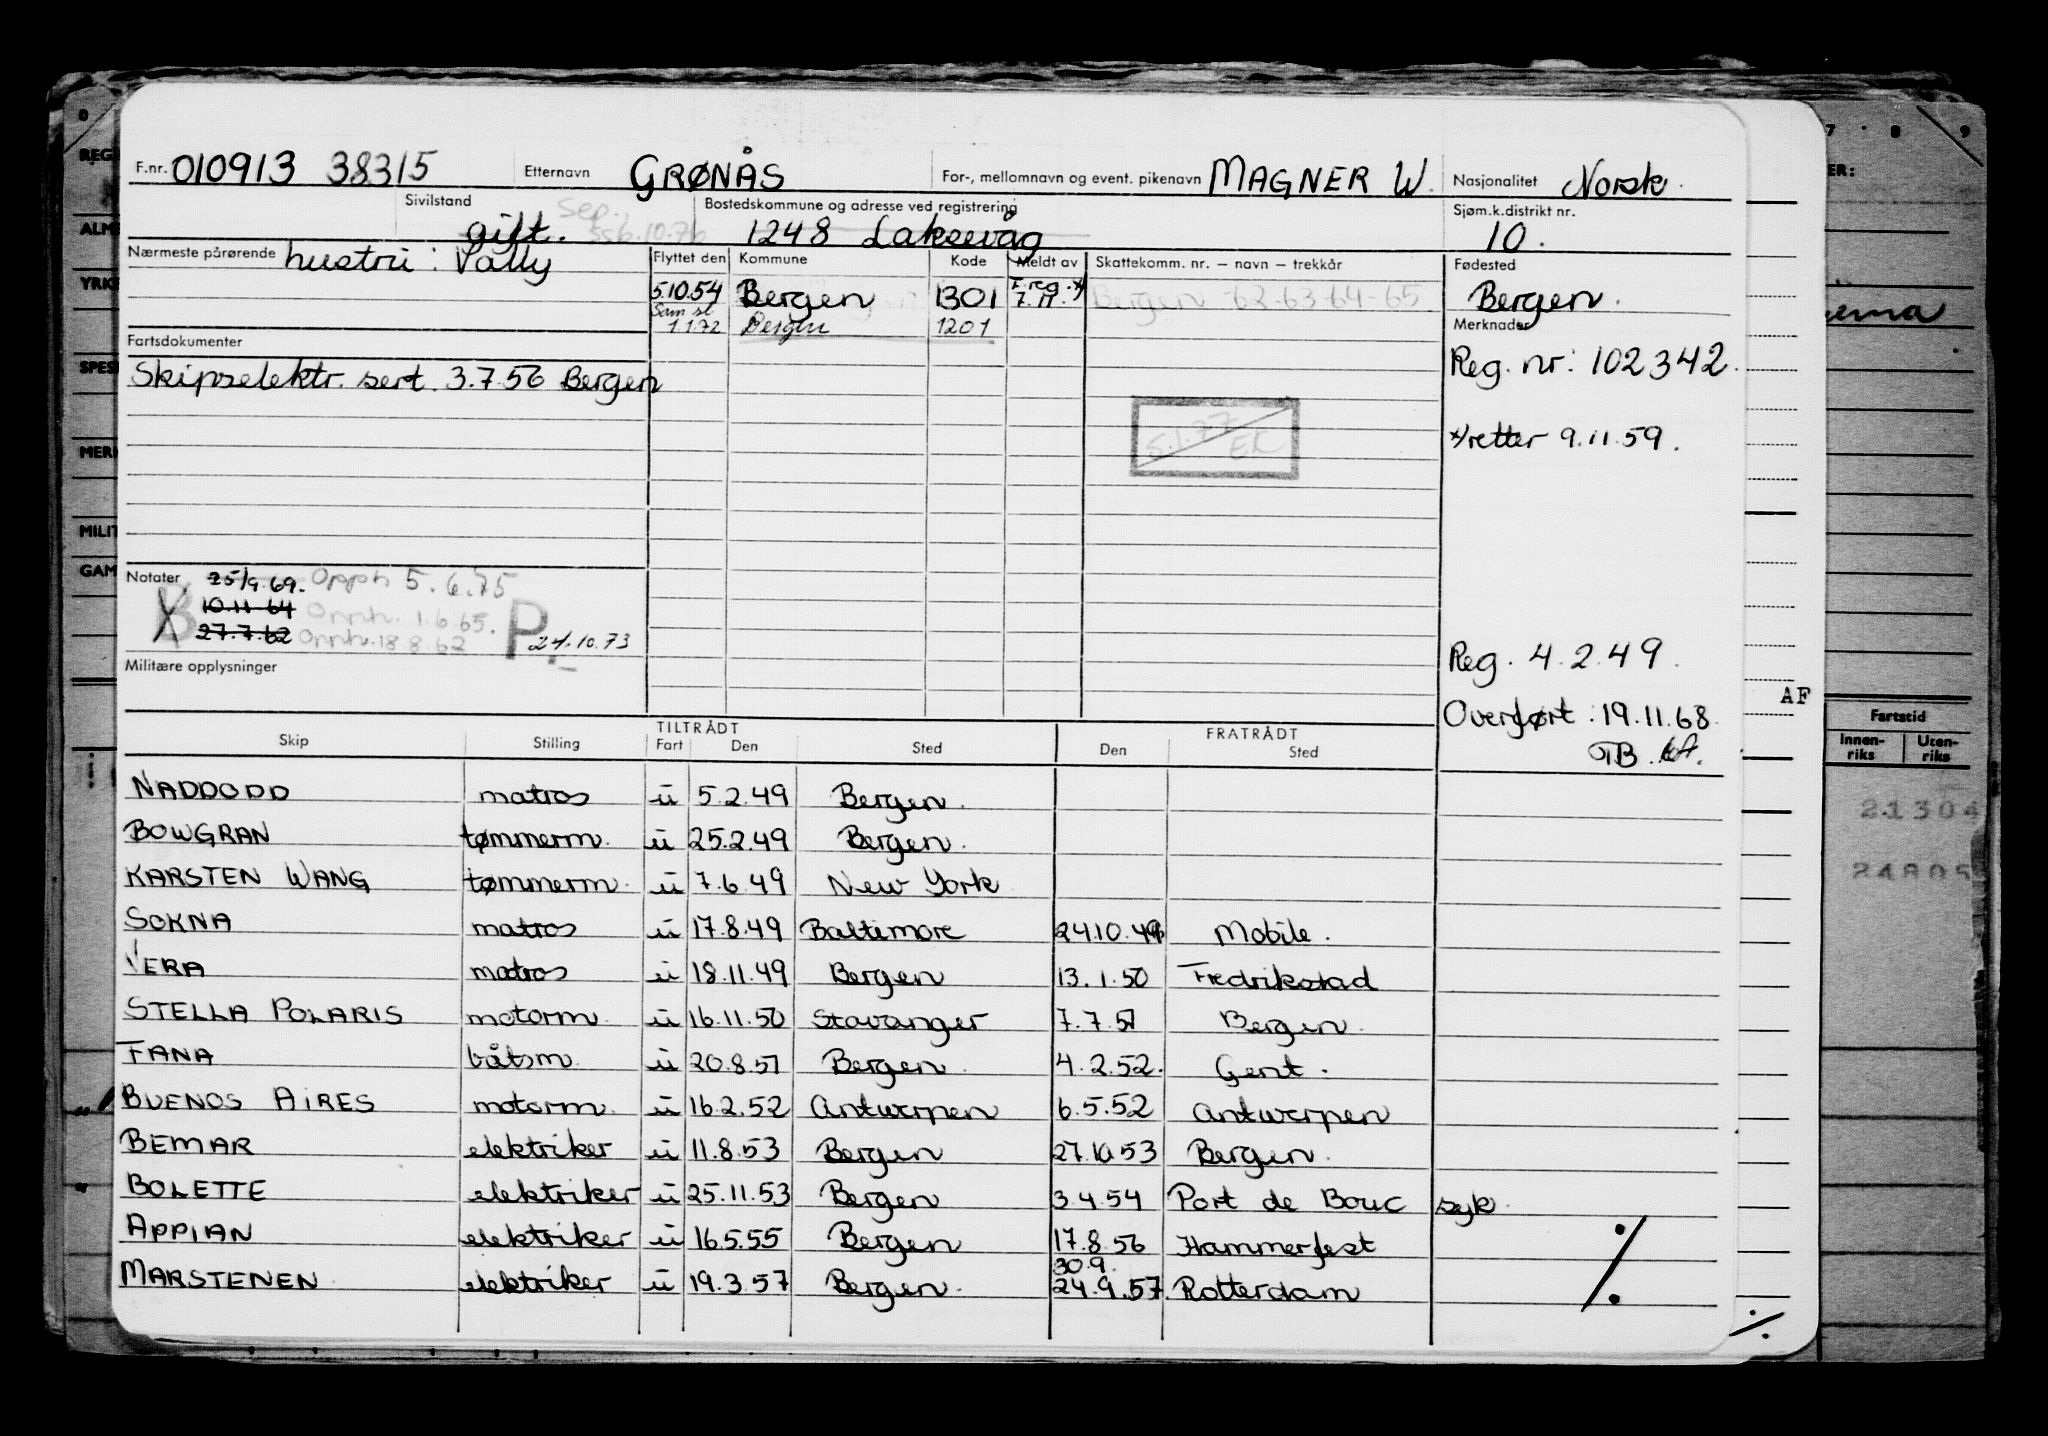 F.nr. 010913 38315 Etternavn GRØNÅS For-, mellomnavn og event. pikenavn MAGNER W. Nasjonalitet Norsk.
Sivilstand gift. Sep. Bostedskommune og adresse ved registrering 1248 Laksevåg Sjøm.k.distrikt nr. 10.
Nærmeste pårørende hustru: Vally Flyttet den Kommune Kode Meldt av Skattekomm. nr. – navn – trekkår Fødested
5.10.54 Bergen 1301 F.reg. 7.11. Bergen -62-63-64-65 Bergen.
1.1.72 Bergen 1201 Merknader
Fartsdokumenter
Skipselektr. sert. 3.7.56 Bergen Reg. nr: 102342.
5.1.77 EK
x/retter 9.11.59.
Notater 25/9.69. Opph 5.6.75
B 10.11 64 Opph. 1.6.65.
27.7.62 Opph. 18 8.62 P. 24.10.73
Militære opplysninger
Reg. 4.2.49.
Overført: 19.11.68.
TB.
AF
TILTRÅDT FRATRÅDT
Skip Stilling Fart Den Sted Den Sted
NADDODD matros u 5.2.49 Bergen.
BOWGRAN tømmerm. u 25.2.49 Bergen.
KARSTEN WANG tømmerm. u 7.6.49 New York
SOKNA matros u 17.8.49 Baltimore 24.10.49 Mobile.
VERA matros u 18.11.49 Bergen 13.1.50 Fredrikstad
STELLA POLARIS motorm. u 16.11.50 Stavanger 7.7.51 Bergen.
FANA båtsm. u 20.8.51 Bergen. 4.2.52. Gent.
BUENOS AIRES motorm. u 16.2.52 Antwerpen 6.5.52 Antwerpen
BEMAR elektriker u 11.8.53 Bergen 27.10.53 Bergen.
BOLETTE elektriker u 25.11.53 Bergen 3.4.54 Port de Bouc syk.
APPIAN elektriker u 16.5.55 Bergen 17.8.56 Hammerfest
30.9.
MARSTENEN elektriker u 19.3.57 Bergen. 24.9.57. Rotterdam
./.
Fartstid
Innen-riks Uten-riks
21304